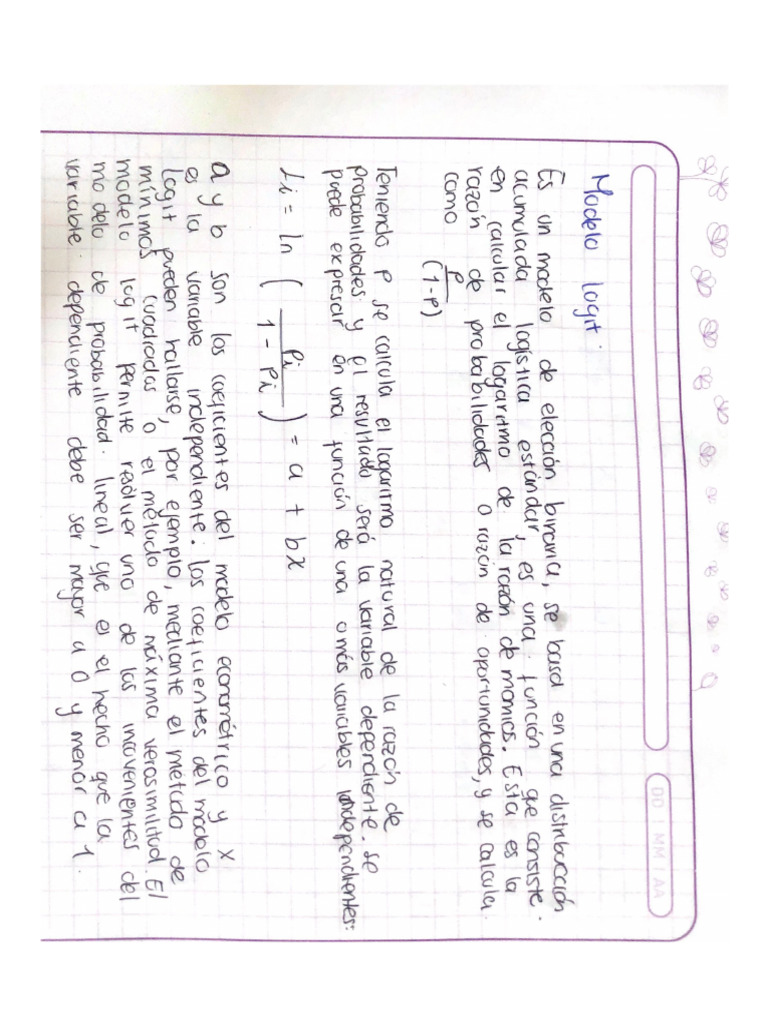 DD / MM / AA
Modelo logit.
Es un modelo de elección binaria, se basa en una distribución
acumulada logística estándar, es una función que consiste.
en calcular el logaritmo de la razón de momios. Esta es la
razón de probabilidades o razón de oportunidades, y se calcula
como p/(1-p)
Teniendo p se calcula el logaritmo natural de la razón de
probabilidades y el resultado será la variable dependiente. Se
puede expresar en una función de una o más variables independientes:
Li = Ln (Pi / 1 - Pi) = a + bx
a y b son los coeficientes del modelo econométrico y X
es la variable independiente. Los coeficientes del modelo
logit pueden hallarse, por ejemplo, mediante el método de
mínimos cuadrados o el método de máxima verosimilitud. El
modelo logit permite resolver uno de los incovenientes del
modelo de probabilidad. lineal, que es el hecho que la
variable. dependiente debe ser mayor a 0 y menor a 1.